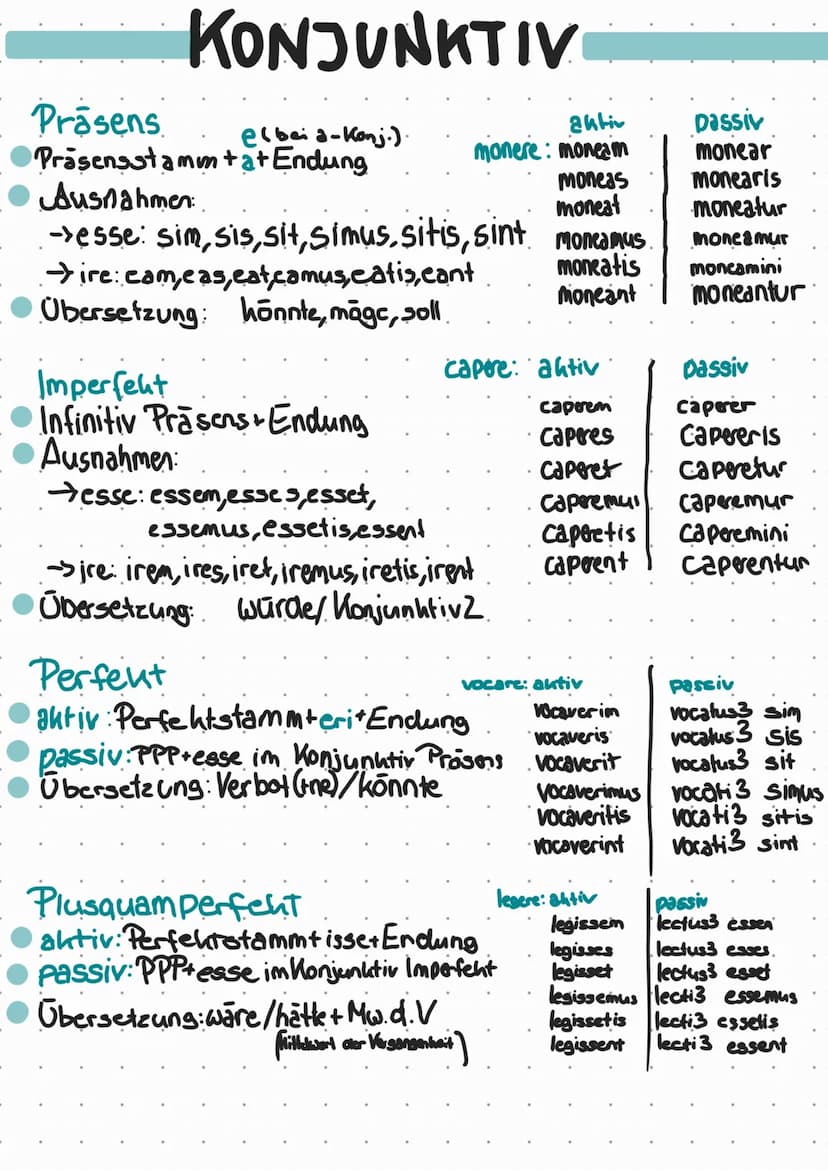 KONJUNKTIV
Präsens
e (bei a-Konj.)
Präsensstamm + a + Endung
Ausnahmen:
→ esse: sim, sis, sit, simus, sitis, sint
→ ire: eam, eas, eat, eamus, eatis, eant
Übersetzung: könnte, möge, soll
aktiv passiv
monere: moneam monear
moneas monearis
moneat moneatur
moneamus moneamur
moneatis moneamini
moneant moneantur
Imperfekt
Infinitiv Präsens + Endung
Ausnahmen:
→ esse: essem, esses, esset,
essemus, essetis, essent
→ ire: irem, ires, iret, iremus, iretis, irent
Übersetzung: würde / Konjunktiv 2
capere: aktiv passiv
caperem caperer
caperes capereris
caperet caperetur
caperemus caperemur
caperetis caperemini
caperent caperentur
Perfekt
aktiv: Perfektstamm + eri + Endung
passiv: PPP + esse im Konjunktiv Präsens
Übersetzung: Verbot (+ne) / könnte
vocare: aktiv passiv
vocaverim vocatus3 sim
vocaveris vocatus3 sis
vocaverit vocatus3 sit
vocaverimus vocati3 simus
vocaveritis vocati3 sitis
vocaverint vocati3 sint
Plusquamperfekt
aktiv: Perfektstamm + isse + Endung
passiv: PPP + esse im Konjunktiv Imperfekt
Übersetzung: wäre / hätte + Mw. d. V
(Mittelwort der Vergangenheit)
legere: aktiv passiv
legissem lectus3 essem
legisses lectus3 esses
legisset lectus3 esset
legissemus lecti3 essemus
legissetis lecti3 essetis
legissent lecti3 essent